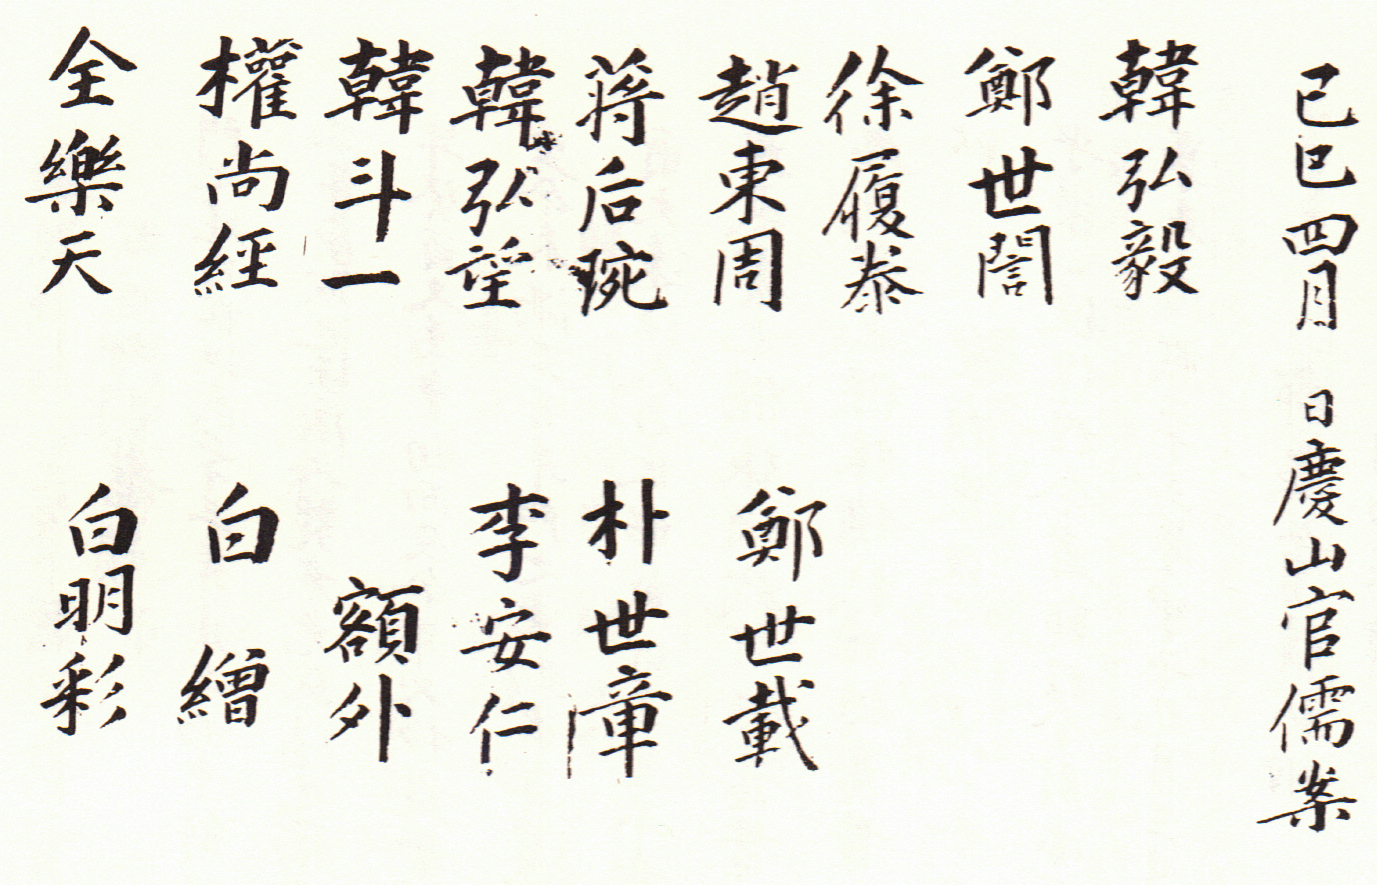 己巳四月 日慶山官儒案
韓弘毅
鄭世誾
徐履泰
趙東周 鄭世載
蔣后琬 朴世章
韓弘望 李安仁
韓斗一 額外
權尚經 白 繒
全樂天 白明彩